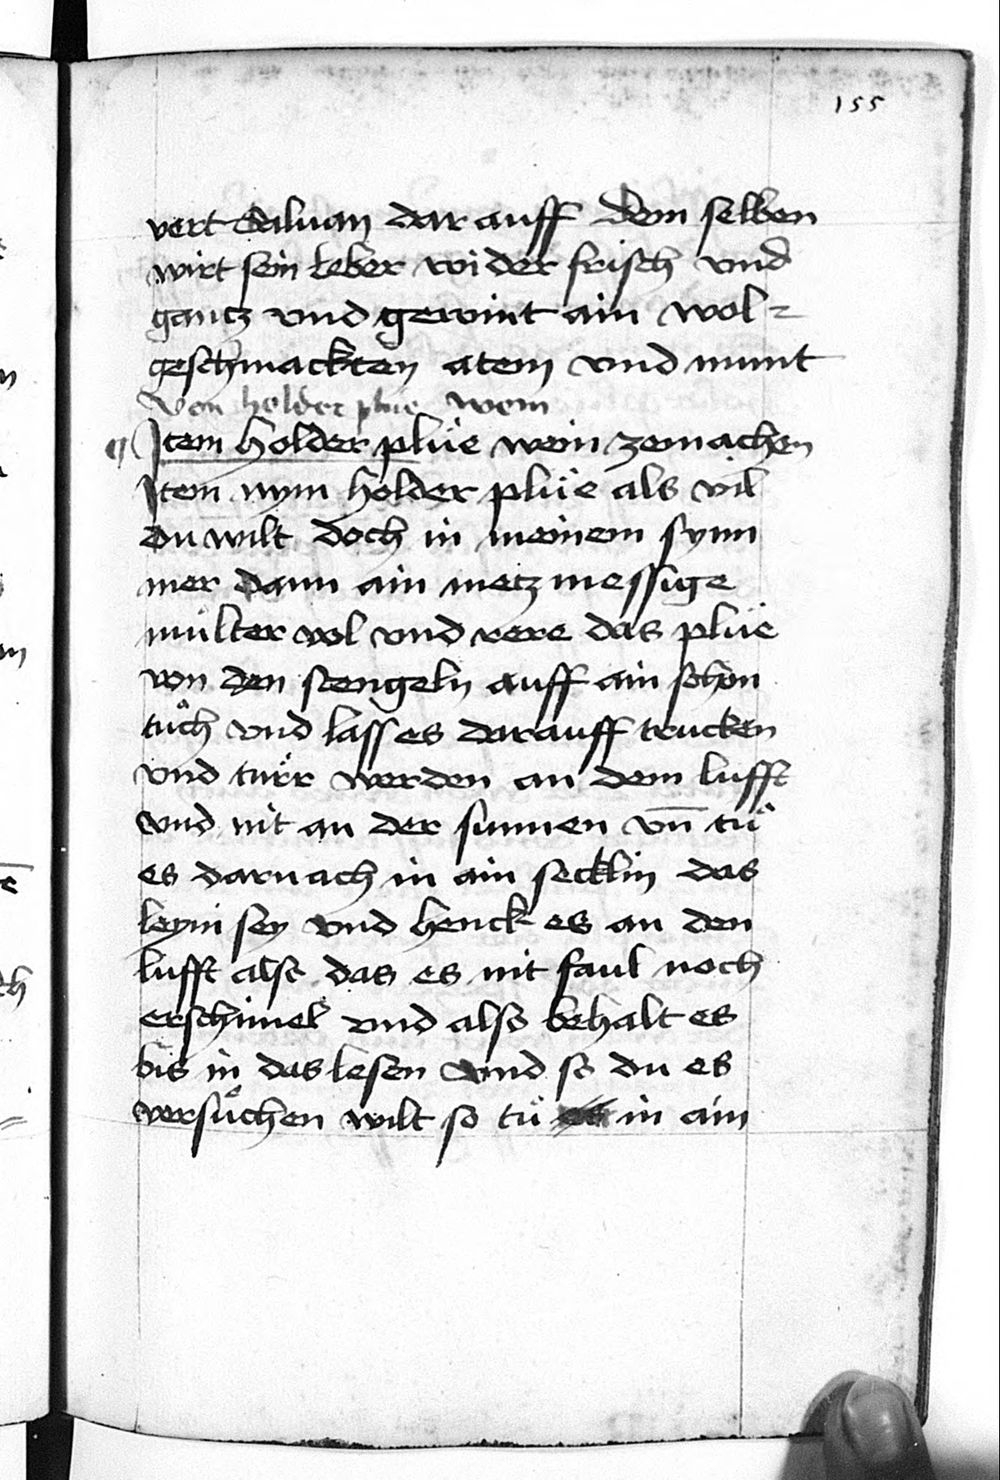 155
vert Saluan dar auff dem selben
wirt sein leber wider frisch vnd
gantz vnd gewint ain wol=
geschmackten atem vnd munt
Von holder plue wein
Jtem holder plüe wein ze machen
Jtem nym holder plüe als vil
du wilt doch in meinem synn
mer dann ain metzmessige
multer vol vnd rere das plüe
von den stengeln auff ain schon
tuͦch vnd lass es darauff trucken
vnd türr werden an dem lufft
vnd nit an der sunnen vn̄ tuͦ
es darnach in ain secklin das
leyni sey vnd henck es an den
lufft also das es nit faul noch
erschimel vnd also behalt es
bis in das lesen vnd so du es
versuͦchen wilt so tuͦ in ain